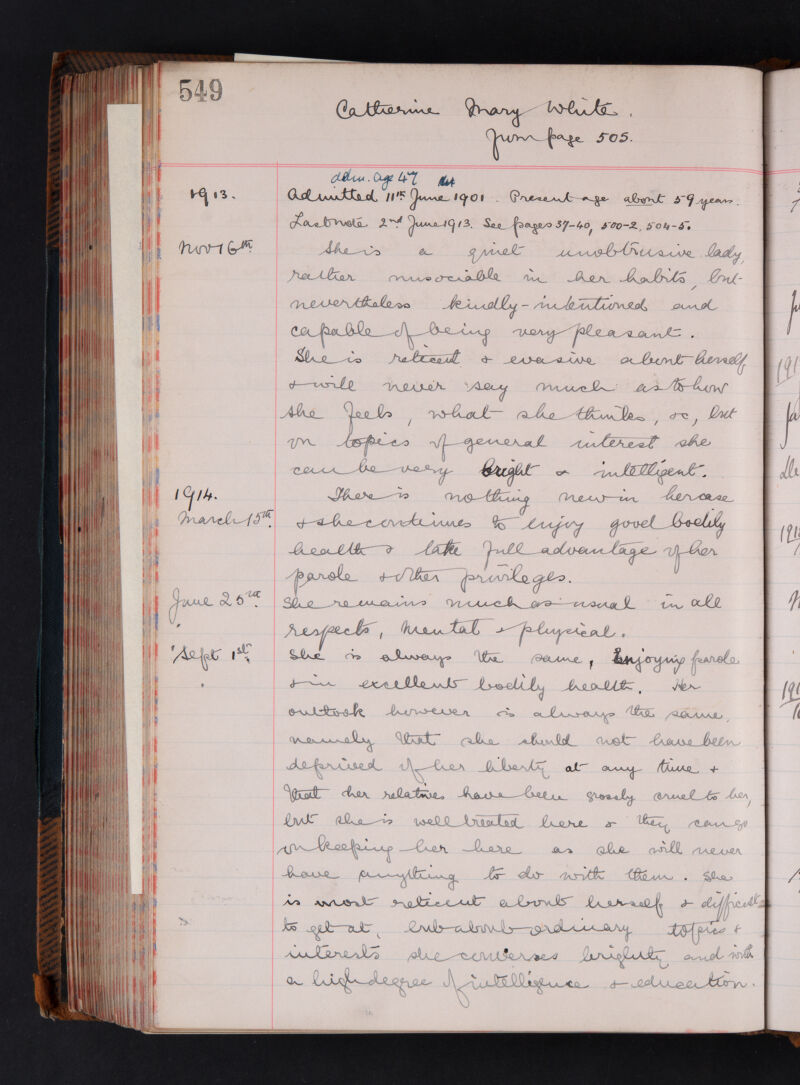 549
Catherine Mary White.
from page 505.
adm. age 47
1913. Admitted 11th June 1901. Present age about 59 years.
Last note 2nd June 1913. See pages 37-40, 500-2, 504-5.
Nov 16th. She is a quiet unobtrusive lady,
rather unsociable in her habits, but
nevertheless kindly-intentioned and
capable of being very pleasant.
She is reticent & evasive about herself
& will never say much as to how
she feels, what she thinks, &c, but
on topics of general interest she
can be very bright & intelligent.
1914. There is nothing new in her case
March 15th. & she continues to enjoy good bodily
health & take full advantage of her
parole & other privileges.
June 25th. She remains much as usual in all
respects, mental & physical.
Sept 1st. She is always the same, Enjoying parole
& in excellent bodily health. Her
outlook however is always the same,
namely that she should not have been
deprived of her liberty at any time &
that her relatives have been grossly cruel to her,
but she is well treated here & they can go
on keeping her here as she will never
have anything to do with them. She
is most reticent about herself & difficult
to get at, but about ordinary topics &
interests she converses brightly and with
a high degree of intelligence & education.